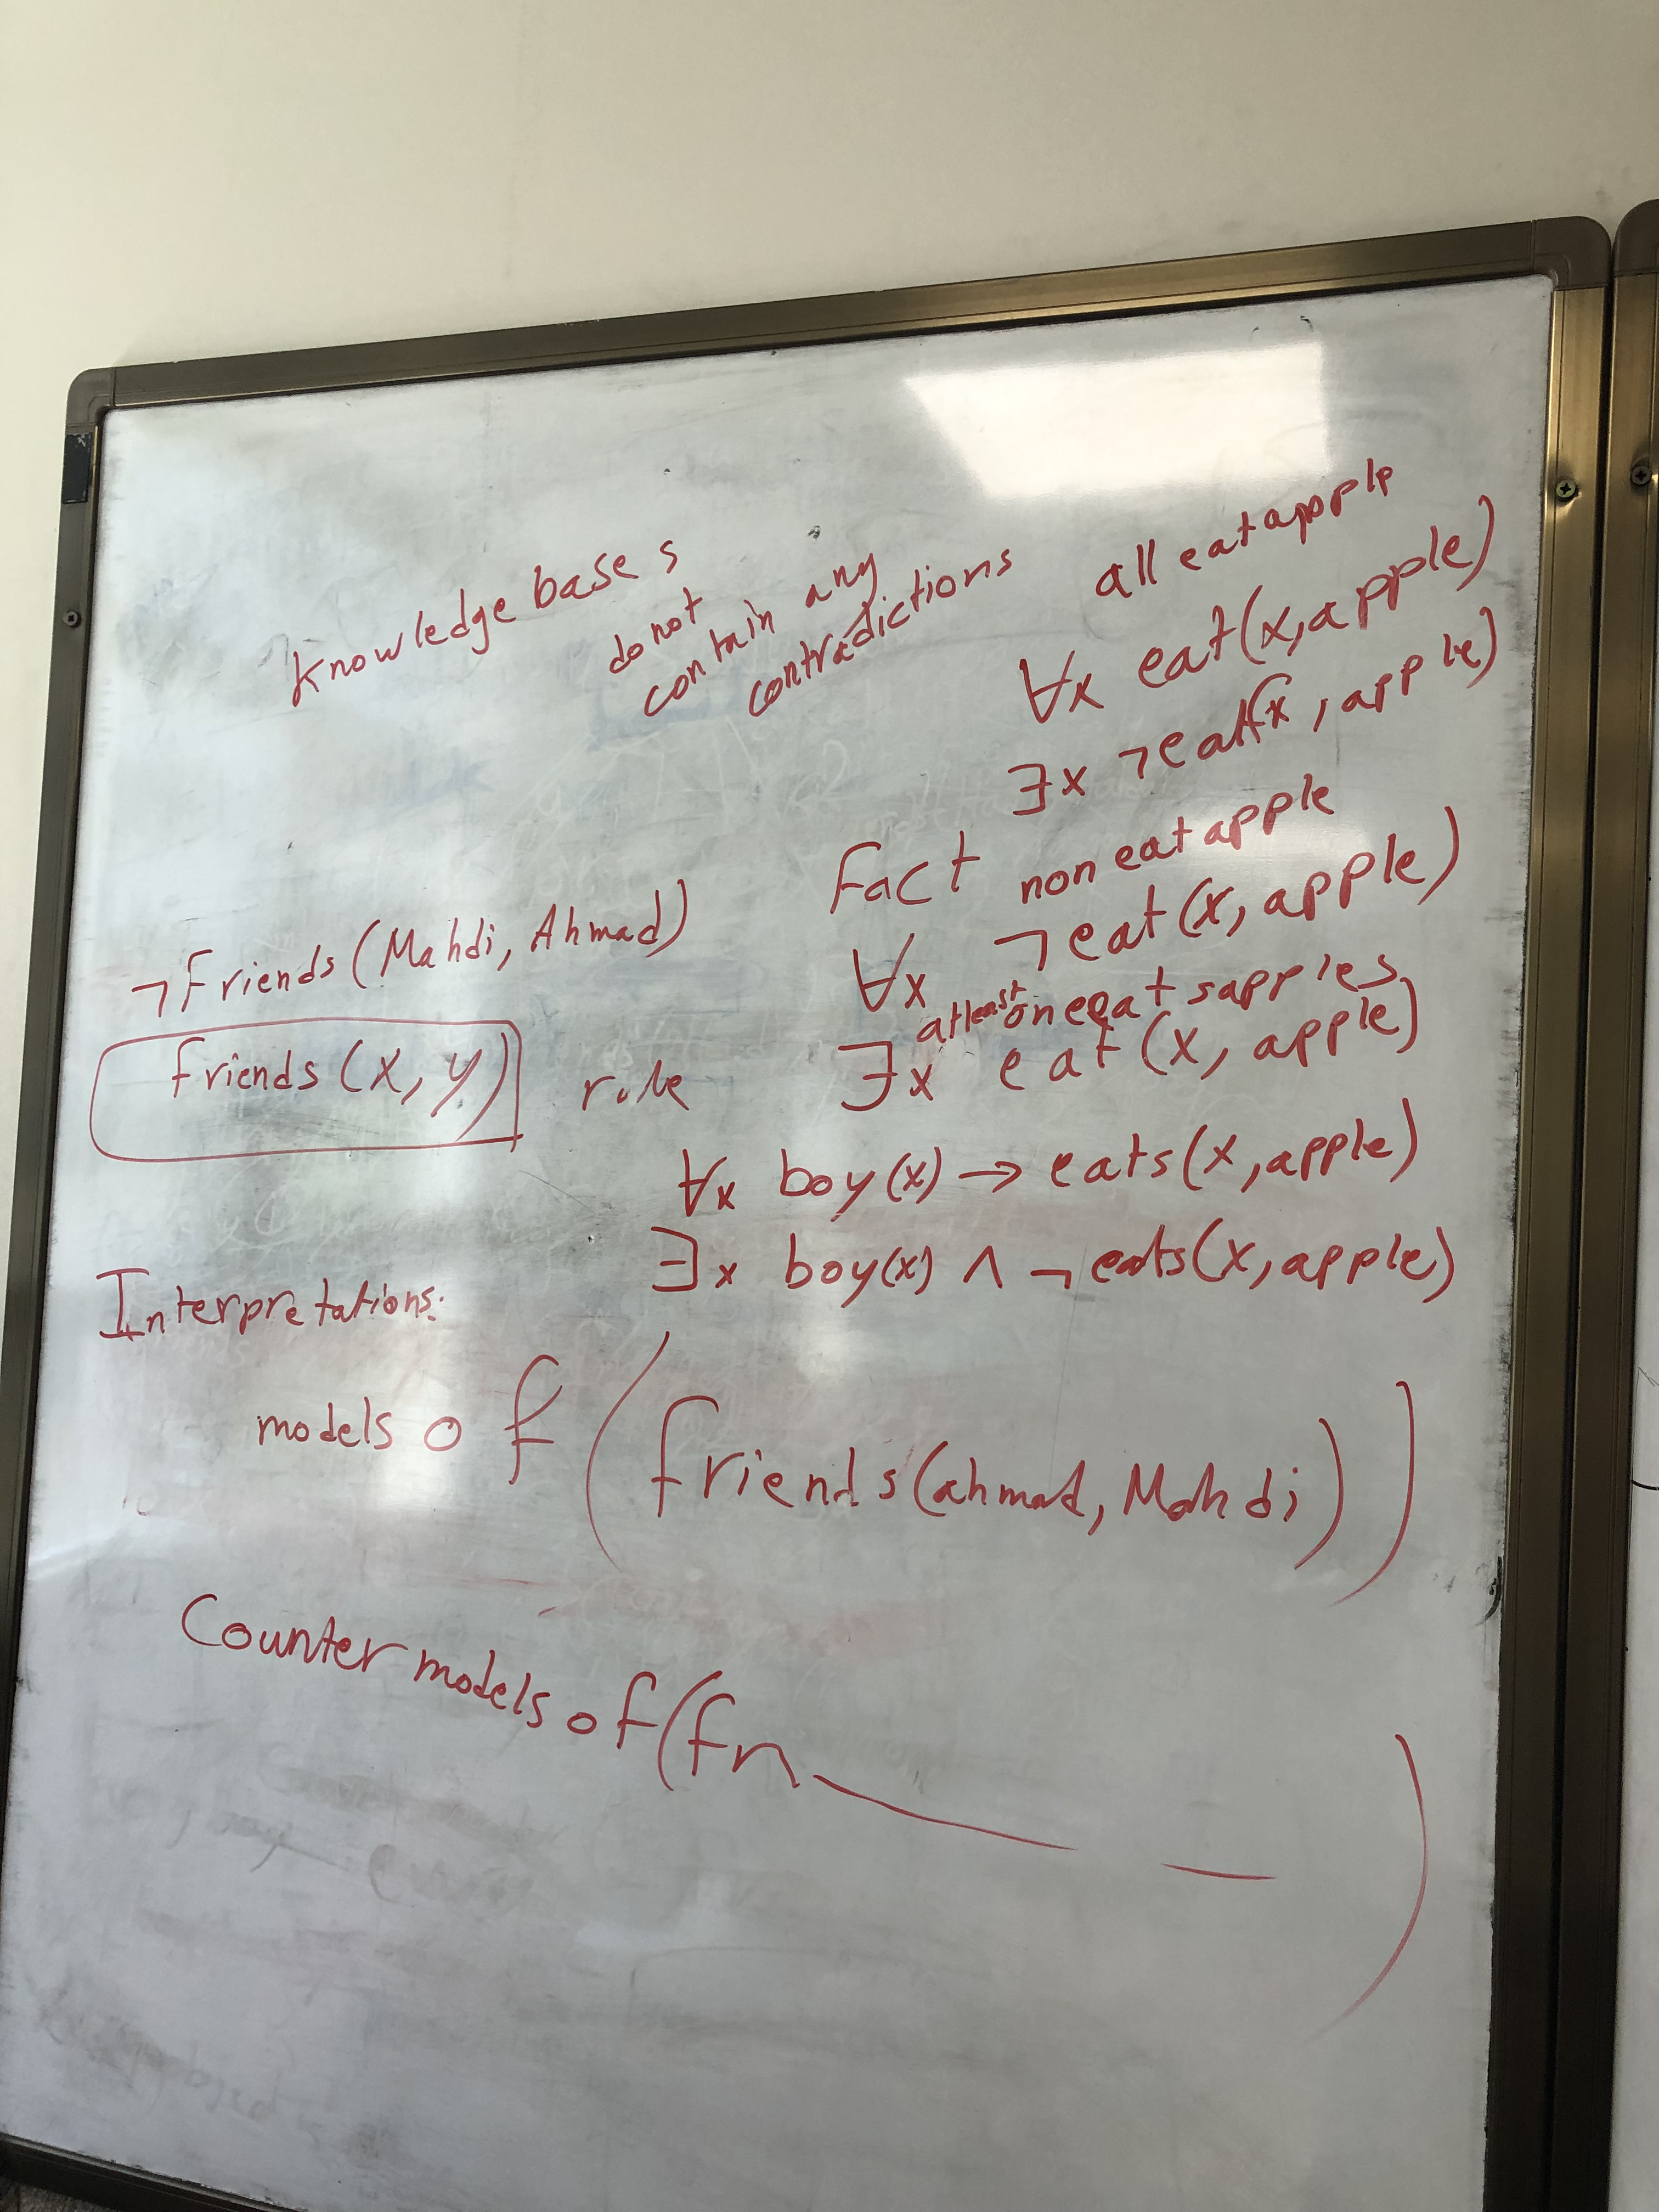 Knowledge bases
do not
contain any
contradictions
all eat apple
∀x eat(x,apple)
∃x ¬eat(x, apple)
Fact non eat apple
∀x ¬eat(x, apple)
atleast one eat s apples
∃x eat(x, apple)
¬Friends(Mahdi, Ahmad)
friends(x, y) rule
∀x boy(x) → eats(x, apple)
∃x boy(x) ∧ ¬eats(x, apple)
Interpretations:
models of (friends(ahmad, Mahdi))
Counter models of (fr )